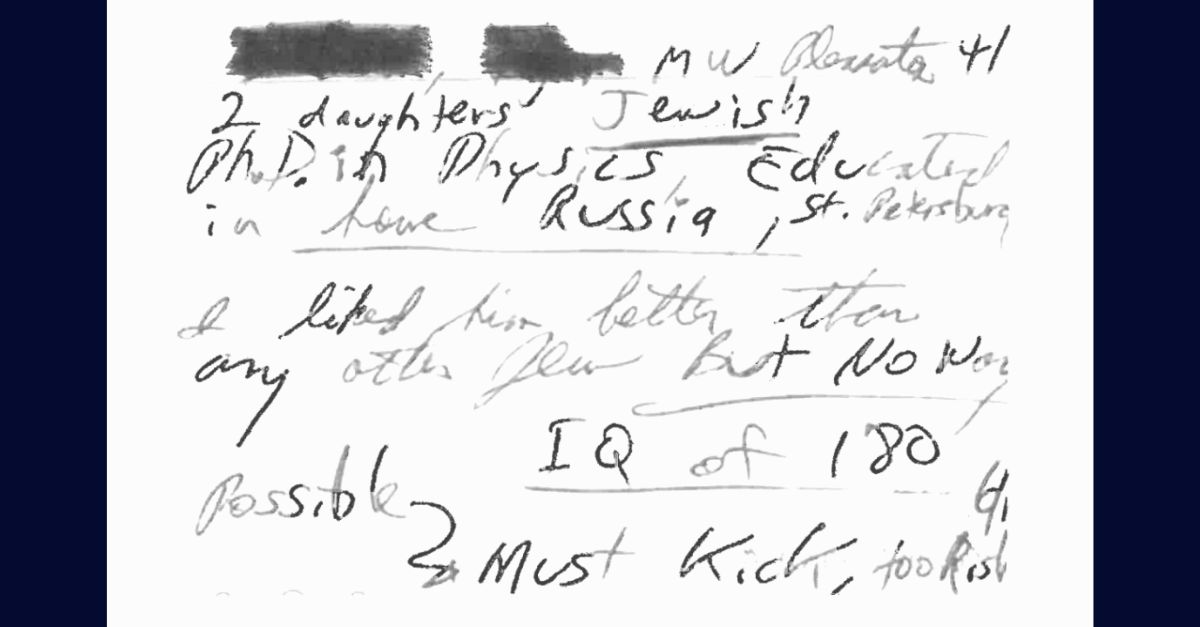 MW 41
2 daughters, Jewish
Ph.D. in Physics Educated
in Russia, St. Petersburg
I liked him better than
any other Jew But No Way
IQ of 180
Possible
Must Kick, too